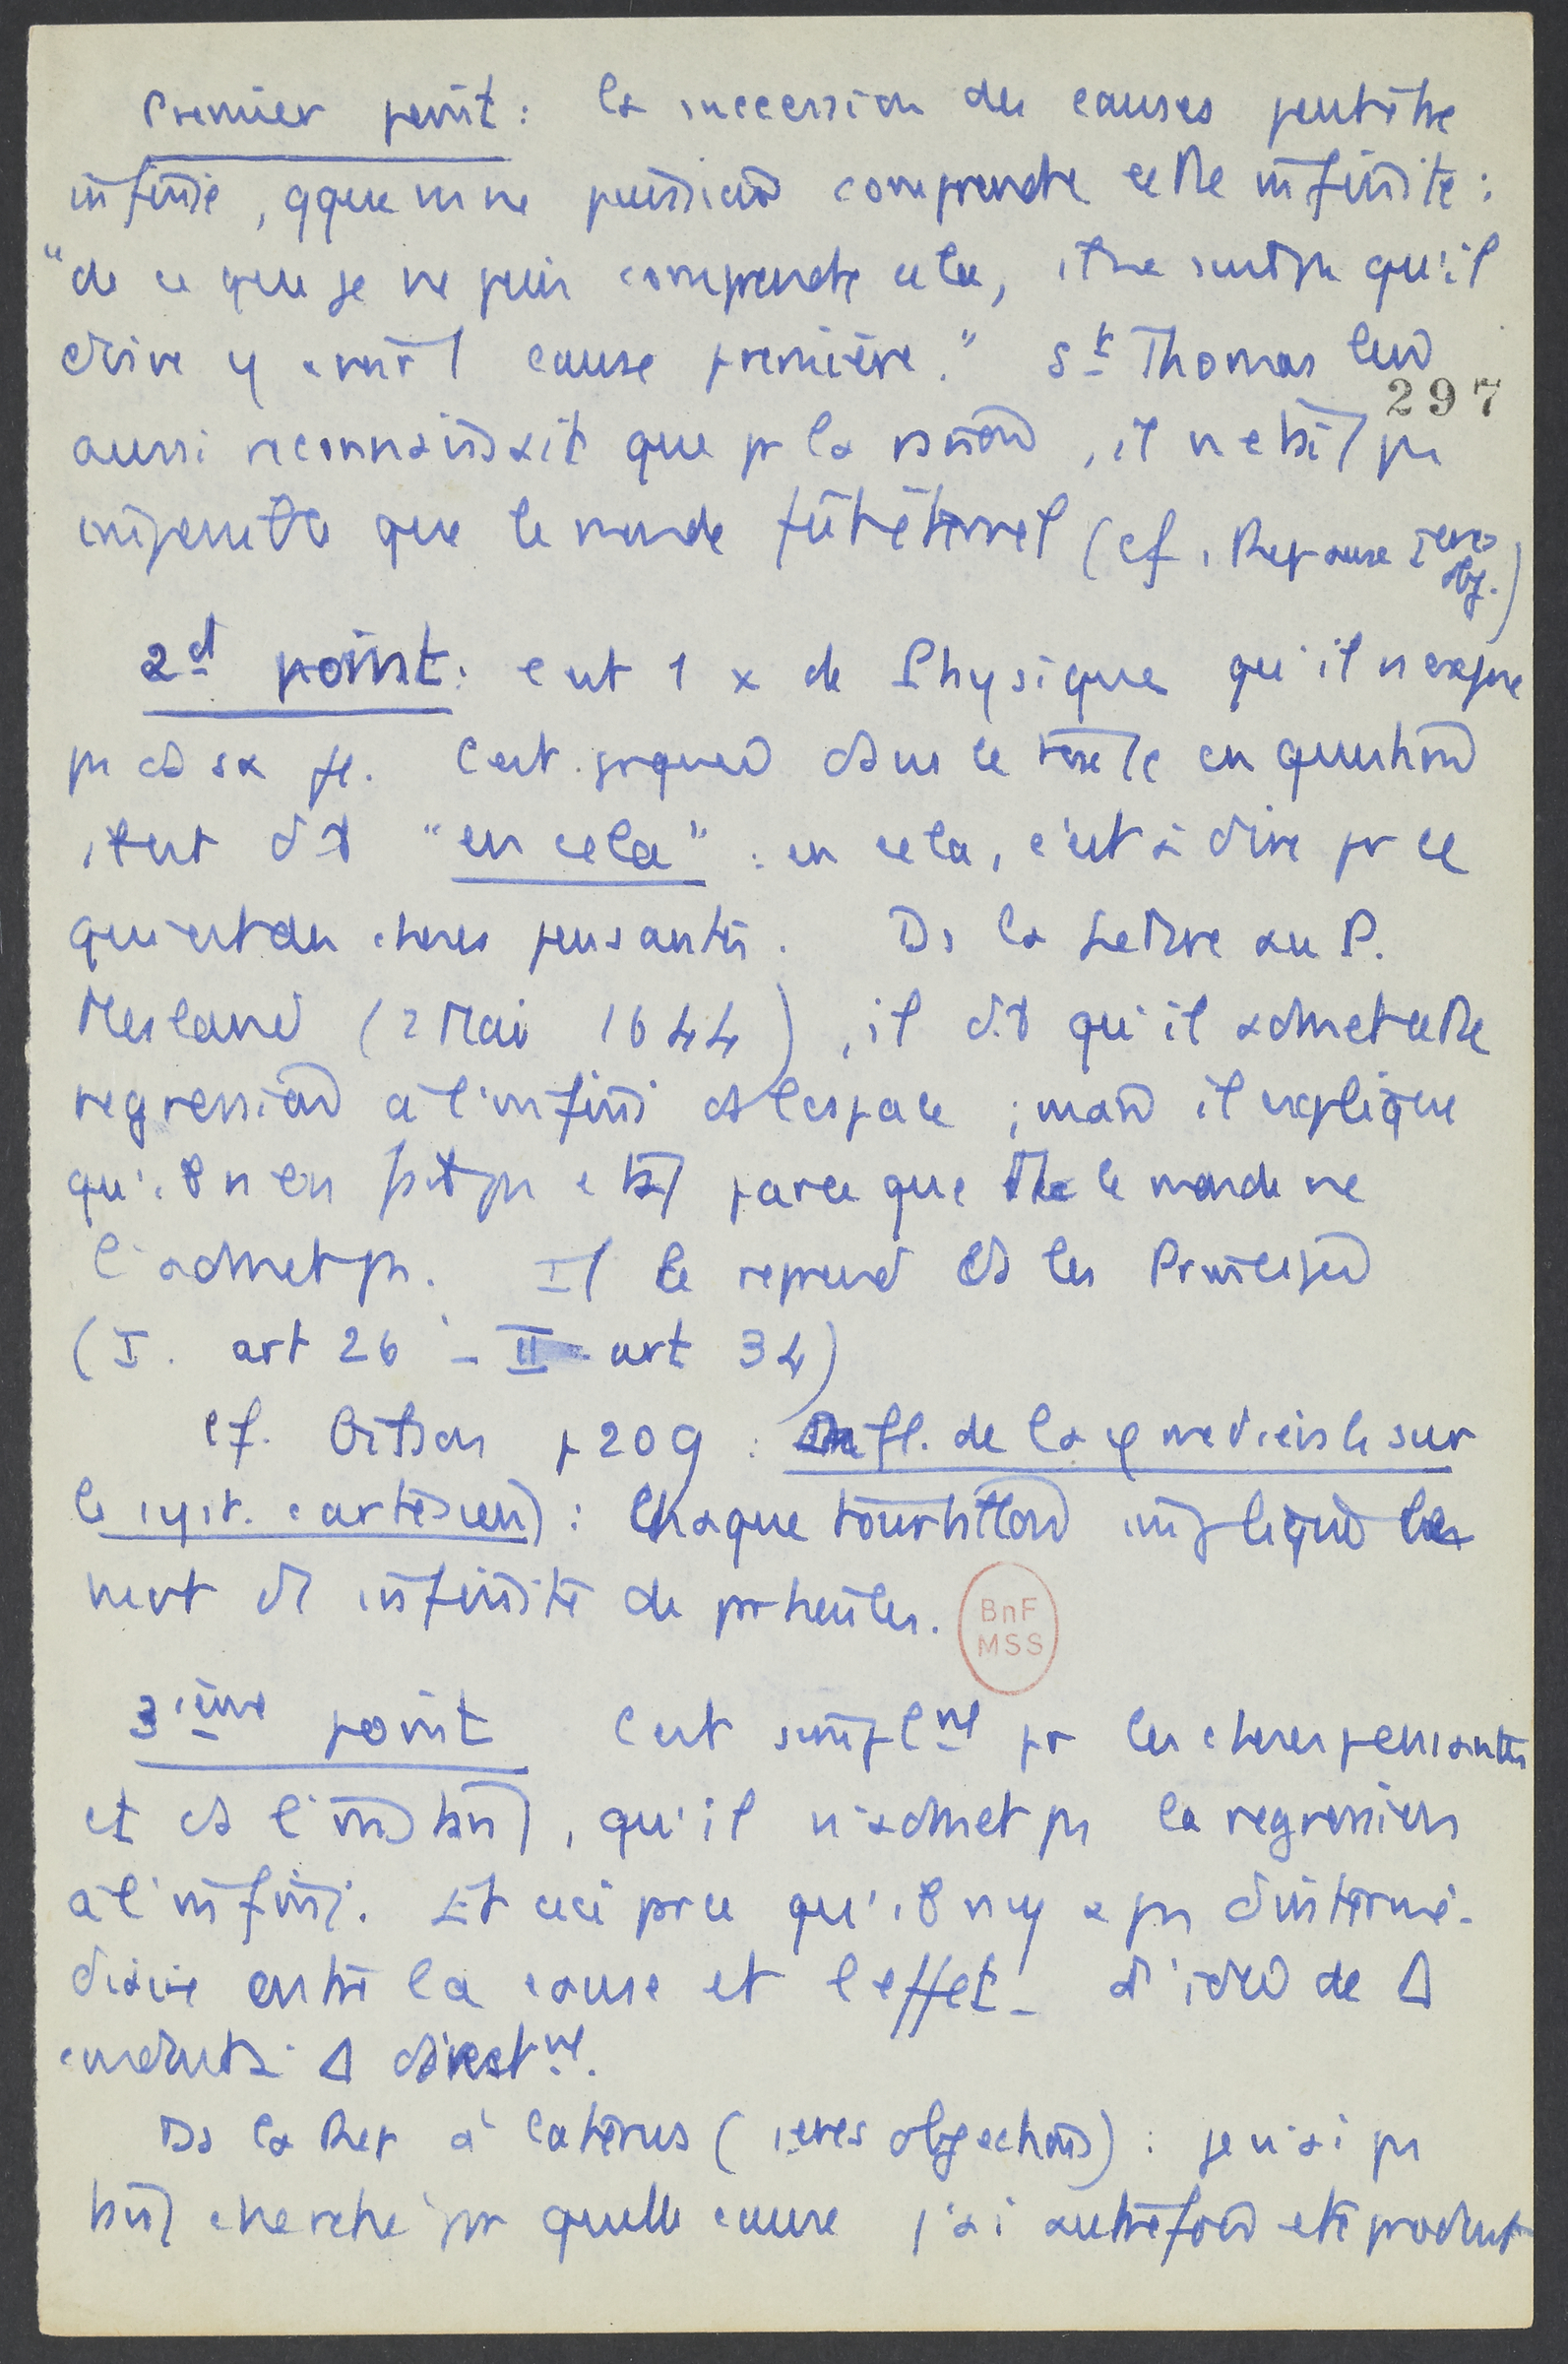 Premier point : la succession des causes peut être
infinie, qque ns ne puissions comprendre cette infinité :
"de ce que je ne puis comprendre cela, il ne suit pas qu'il
doive y avoir 1 cause première." St Thomas lui
297
aussi reconnaissait que pr la raison, il n'était pas
impossible que le monde fût éternel (cf. Réponse 1eres
obj.)
2d point : c'est 1 x de Physique qu'il n'expose
pas ds sa φ. C'est pquoi dans le texte en question
il est dit "en cela" : en cela, c'est à dire pr ce
qui est des choses pensantes. Ds la Lettre au P.
Mesland (2 Mai 1644), il dit qu'il admet cette
regression à l'infini ds l'espace ; mais il explique
qu'il n'en fait pas état parce que le monde ne
l'admet pas. Il le reprend ds les Principes
(I. art 26 - II art 34)
cf. Gilson p 209 : Infl. de la φ médiévale sur
le syst. cartésien) : Chaque tourbillon implique
infinité de particules.
BnF
MSS
3ième point C'est simplmt pr les choses pensantes
et ds l'instant, qu'il n'admet pas la regression
à l'infini. Et ceci parce qu'il n'y a pas d'intermé-
diaire entre la cause et l'effet - L'idée de Δ
conduit à Δ directmt.
Ds la Rep à Caterus (1eres objections) : je n'ai pas
tant cherché par quelle cause j'ai autrefois été produit